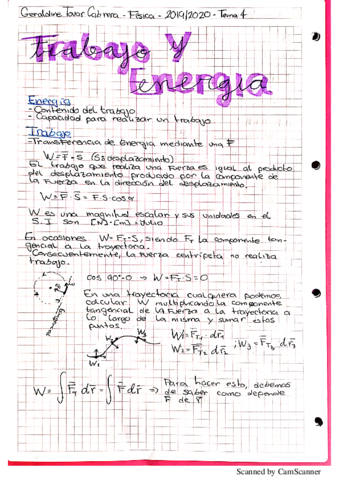 Geraldine Tovar Cabrera - Física - 2019/2020 - Tema 4
Trabajo Y
Energia
Energía
- Contenido del trabajo
- Capacidad para realizar un trabajo
Trabajo
- Transferencia de Energia mediante una F
W = F · S (S: desplazamiento)
El trabajo que realiza una Fuerza es igual al producto
del desplazamiento producido por la componente de
la Fuerza en la dirección del desplazamiento.
W = F · S = F · S · cos α
W es una magnitud escalar y sus unidades en el
S.I son [N]·[m] = Julio
En ocasiones W = F_T · S, siendo F_T la componente tan-
gencial a la trayectoria.
Consecuentemente, la fuerza centrípeta no realiza
trabajo.
cos 90º = 0 → W = F_T · S = 0
En una trayectoria cualquiera podemos
calcular W multiplicando la componente
tangencial de la Fuerza a la trayectoria a
lo largo de la misma y sumar estos
puntos.
W₁ = F_T₁ · dr₁
W₂ = F_T₂ dr₂ ; W₃ = F_T₃ dr₃
W₃
W = ∫ F_T dr = ∫ F dr ⇒ Para hacer esto, debemos
de saber como depende
F de r
Scanned by CamScanner